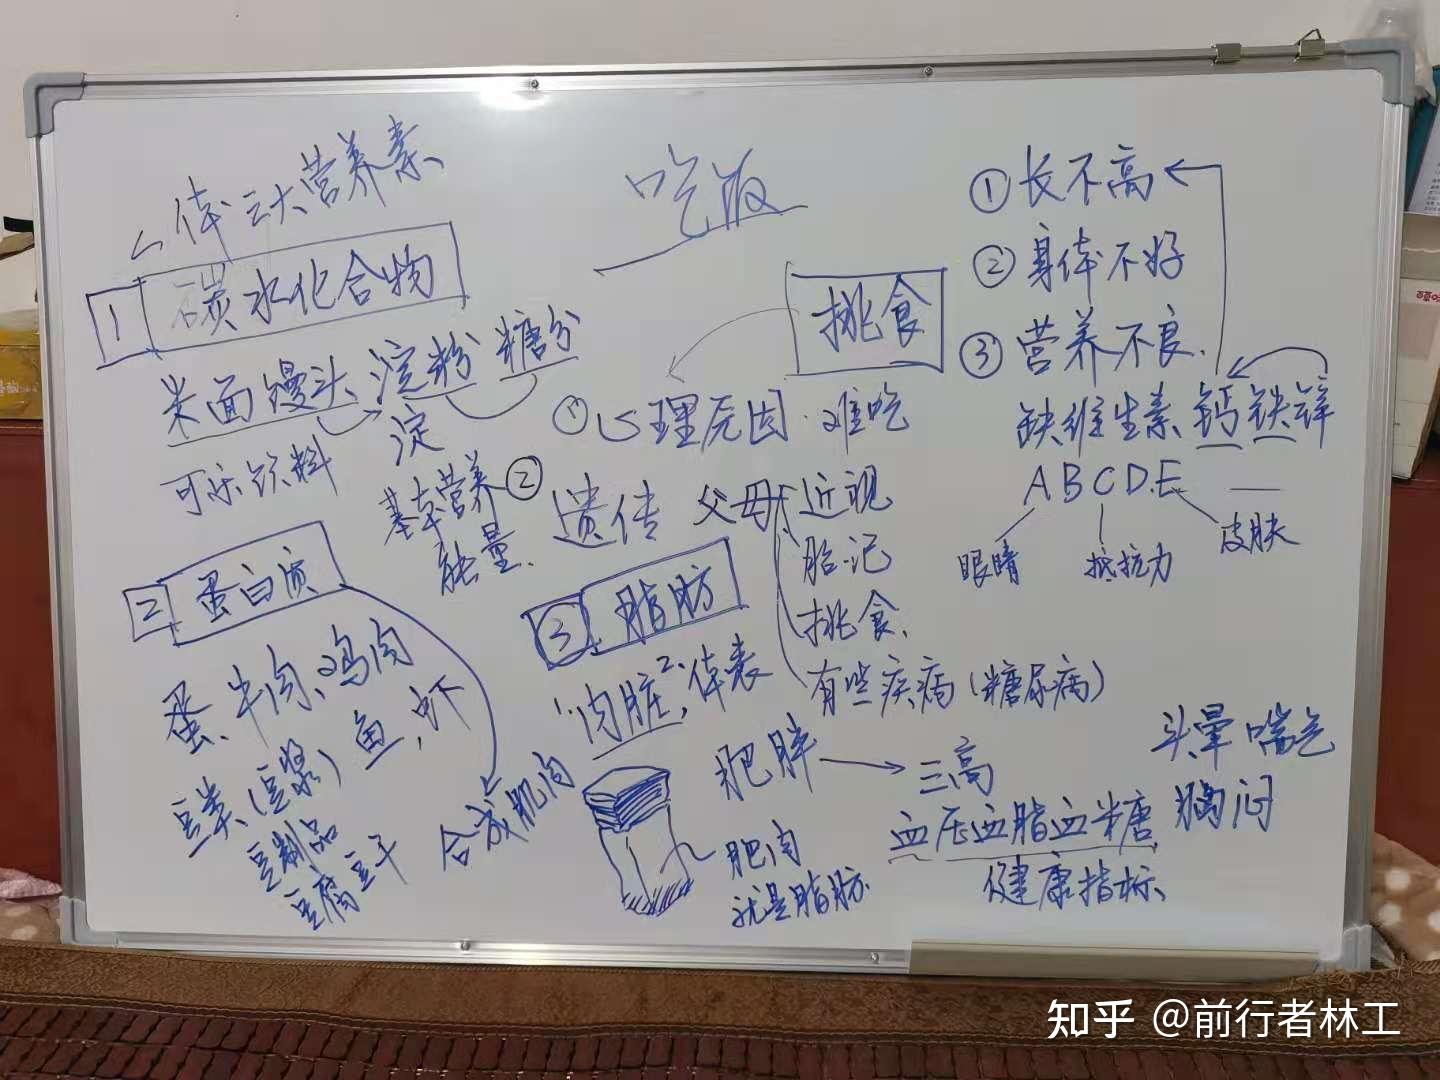 人体三大营养素
吃饭
1 碳水化合物
米面馒头 淀粉 糖分
可乐饮料 淀
基本营养
能量.
2 蛋白质
蛋、牛肉、鸡肉
鱼,虾
豆类、(豆浆)
豆制品
豆腐豆干
合成肌肉
③ 脂肪
1.内脏, 2.体表
肥胖
三高
肥肉
就是脂肪.
血压血脂血糖
健康指标
头晕 喘气
胸闷
挑食
① 心理原因·难吃
② 遗传 父母 近视
胎记
挑食.
有些疾病(糖尿病)
① 长不高
② 身体不好
③ 营养不良.
缺维生素 钙铁锌
A B C D E
眼睛 抵抗力 皮肤
知乎 @前行者林工